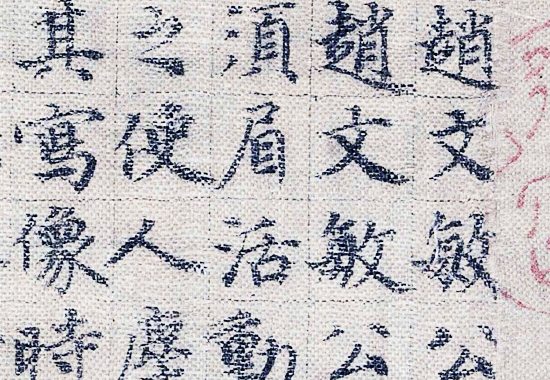 趙文敏公
趙文敏公
須眉活動
之使人塵
其寫像時